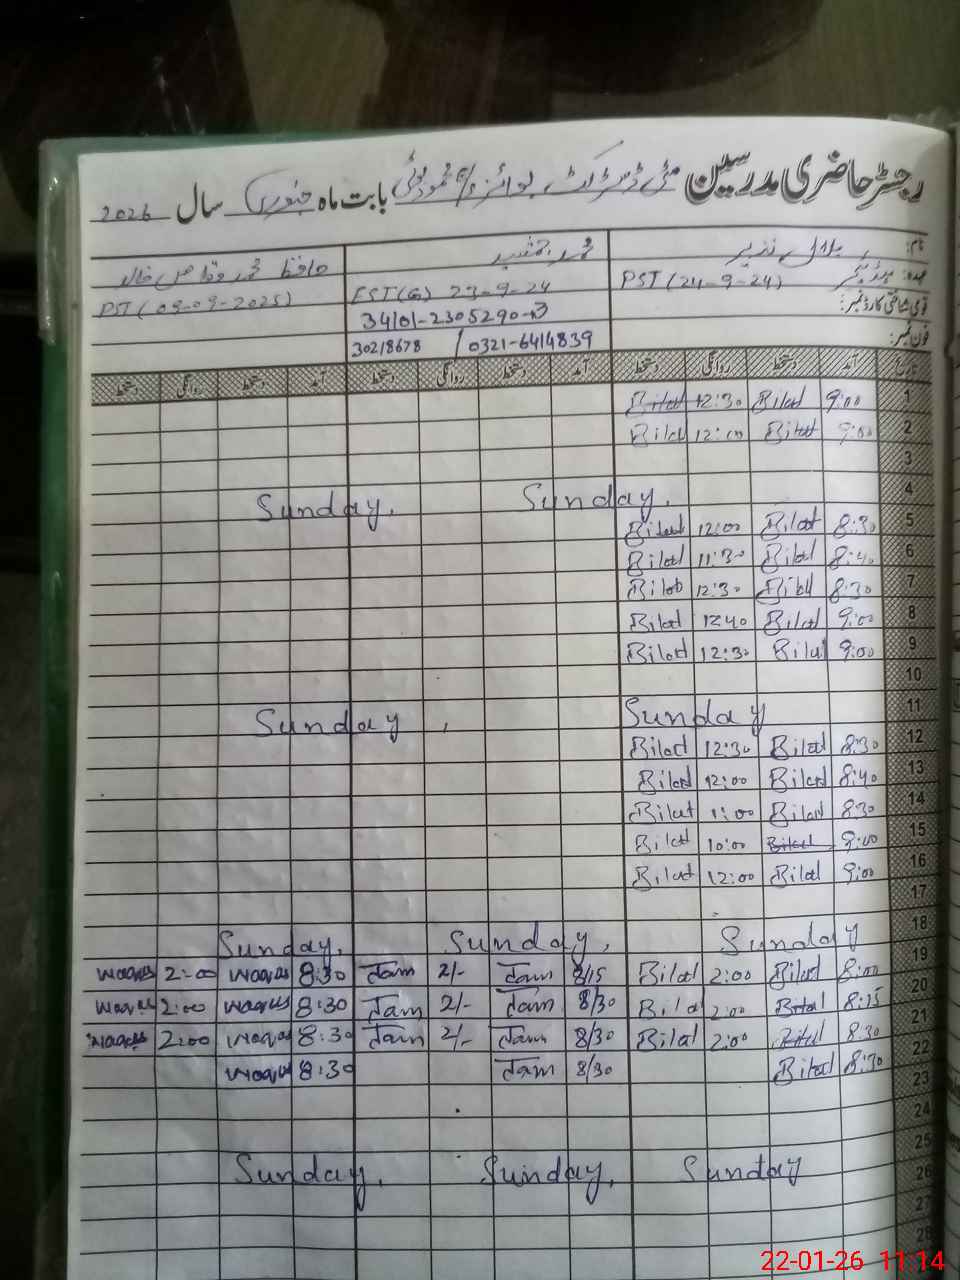 رجسٹر حاضری مدرسین بابت ماہ جنوری سال 2026
نام: بلال نذیر محمد جمشید حافظ محمد وقاص خالد
عہدہ: PST (24-9-24) EST(G) 23-9-24 PST (09-09-2025)
قومی شناختی کارڈ نمبر: 34101-2305290-3
فون نمبر: 30218678 / 0321-6414839
تاریخ آمد دستخط روانگی دستخط آمد دستخط روانگی دستخط آمد دستخط روانگی دستخط
1 9:00 Bilal 12:30 Bilal
2 9:00 Bilal 12:00 Bilal
3
4 Sunday. Sunday.
5 8:30 Bilal 12:00 Bilal
6 8:40 Bilal 11:30 Bilal
7 8:30 Bilal 12:30 Bilal
8 9:00 Bilal 12:40 Bilal
9 9:00 Bilal 12:30 Bilal
10
11 Sunday Sunday.
12 8:30 Bilal 12:30 Bilal
13 8:40 Bilal 12:00 Bilal
14 8:30 Bilal 11:00 Bilal
15 9:00 Bilal 10:00 Bilal
16 9:00 Bilal 12:00 Bilal
17
18 Sunday Sunday. Sunday.
19 8:00 Bilal 2:00 Bilal 8/15 Jam 2/- Jam 8:30 waqas 2:00 waqas
20 8:15 Bilal 2:00 Bilal 8/30 Jam 2/- Jam 8:30 waqas 2:00 waqas
21 8:30 Bilal 2:00 Bilal 8/30 Jam 2/- Jam 8:30 waqas 2:00 waqas
22 8:30 Bilal 8/30 Jam 8:30 waqas
23
24
25 Sunday Sunday. Sunday.
26
27
28
22-01-26 11:14